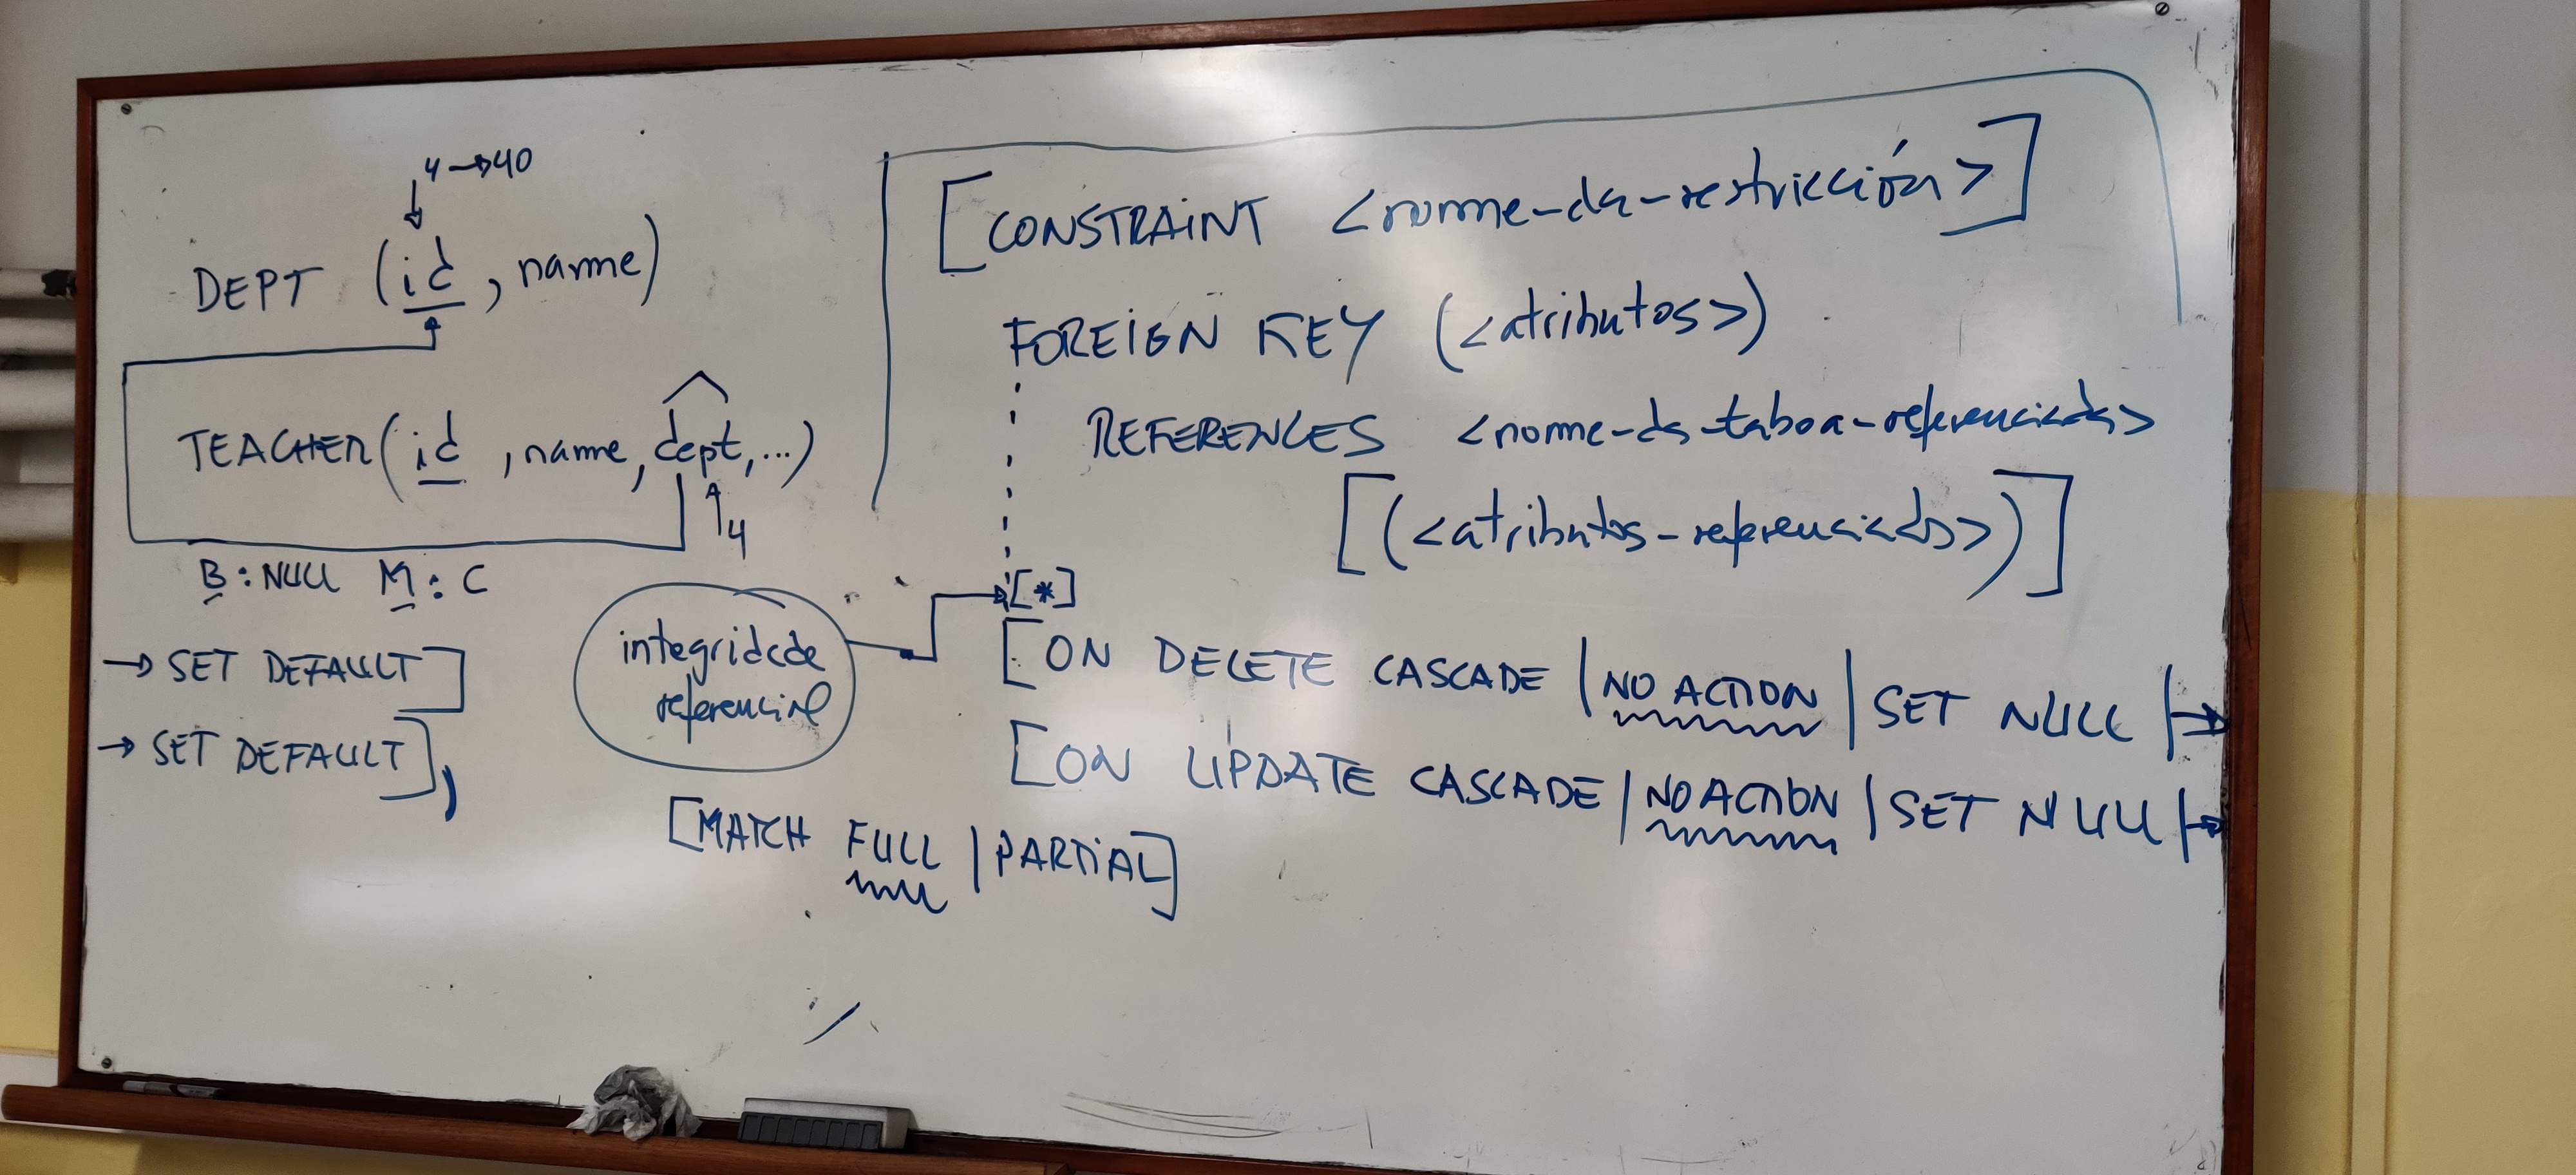 4→40
DEPT (id, name)
TEACHER(id, name, dept, ...)
↑4
B: NULL M: C
→ SET DEFAULT]
→ SET DEFAULT],
[CONSTRAINT <nome-da-restricción>]
FOREIGN KEY (<atributos>)
REFERENCES <nome-da-taboa-referenciada>
[(<atributos-referenciados>)]
integridade
referencial
[*]
[ON DELETE CASCADE | NO ACTION | SET NULL |→
[ON UPDATE CASCADE | NO ACTION | SET NULL |→
[MATCH FULL | PARTIAL]